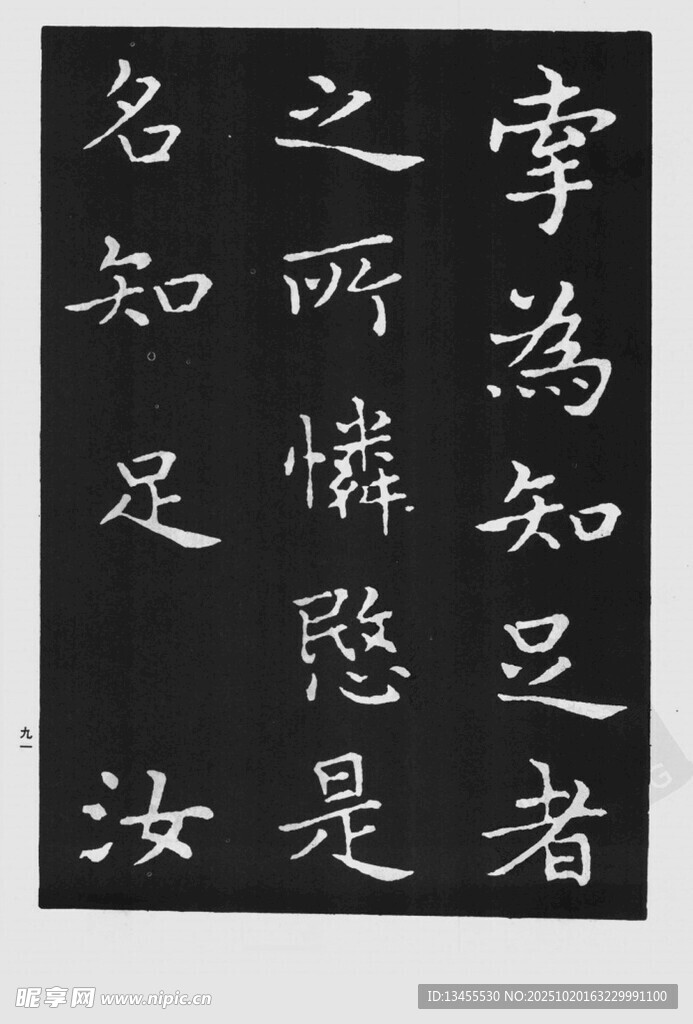 牽為知足者
之所憐愍是
名知足 汝
九一
昵享网 www.nipic.cn
ID:13455530 NO:20251020163229991100